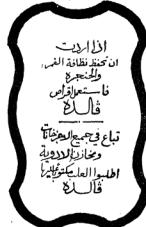 اذا اردت
ان تحفظ نظافة الفم
والحنجرة
فاستعمل اقراص
ڤالدة
تباع في جميع الاجزاخانات
ومخازن الادوية
اطلبوا العلب
ڤالدة